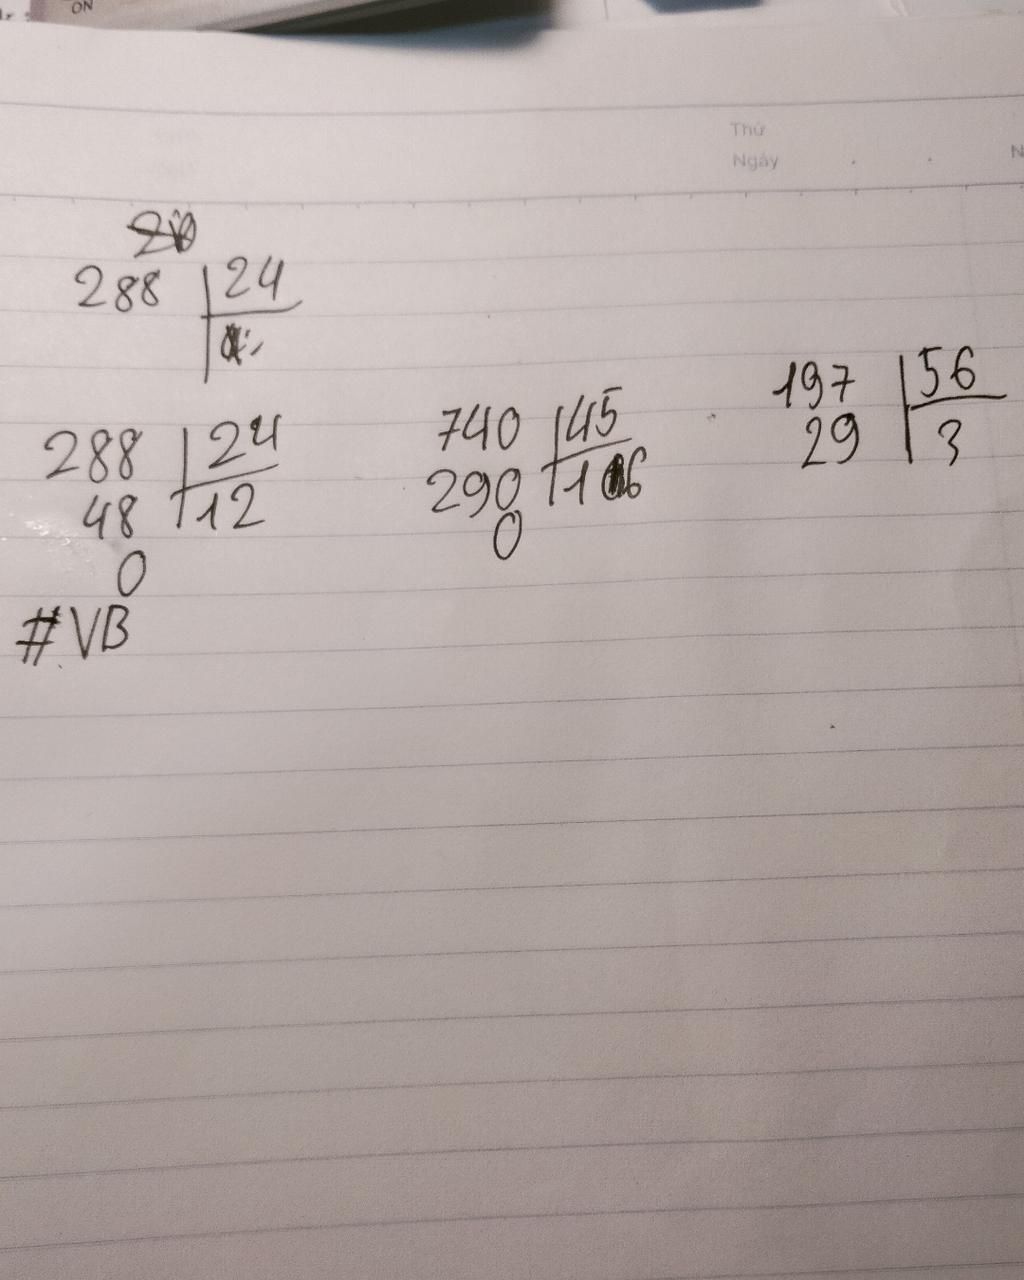 ON
Thứ
Ngày
288 24
288 24
48 12
0
740 45
290 16
0
197 56
29 3
#VB